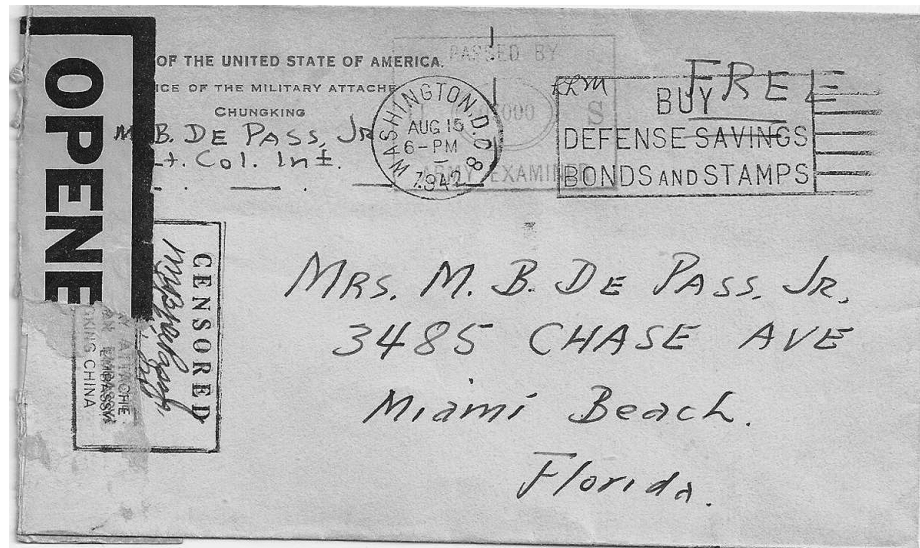 OPENE
OF THE UNITED STATE OF AMERICA.
ICE OF THE MILITARY ATTACHE
CHUNGKING
M. B. DE PASS, JR
Lt. Col. Int.
PASSED BY
S
ARMY EXAMINER
WASHINGTON, D.C.
AUG 15
6-PM
1942
8
FREE
BUY
DEFENSE SAVINGS
BONDS AND STAMPS
CENSORED
Y ATTACHE.
AN EMBASSY
GKING CHINA
MRS. M. B. DE PASS, JR,
3485 CHASE AVE
Miami Beach.
Florida.